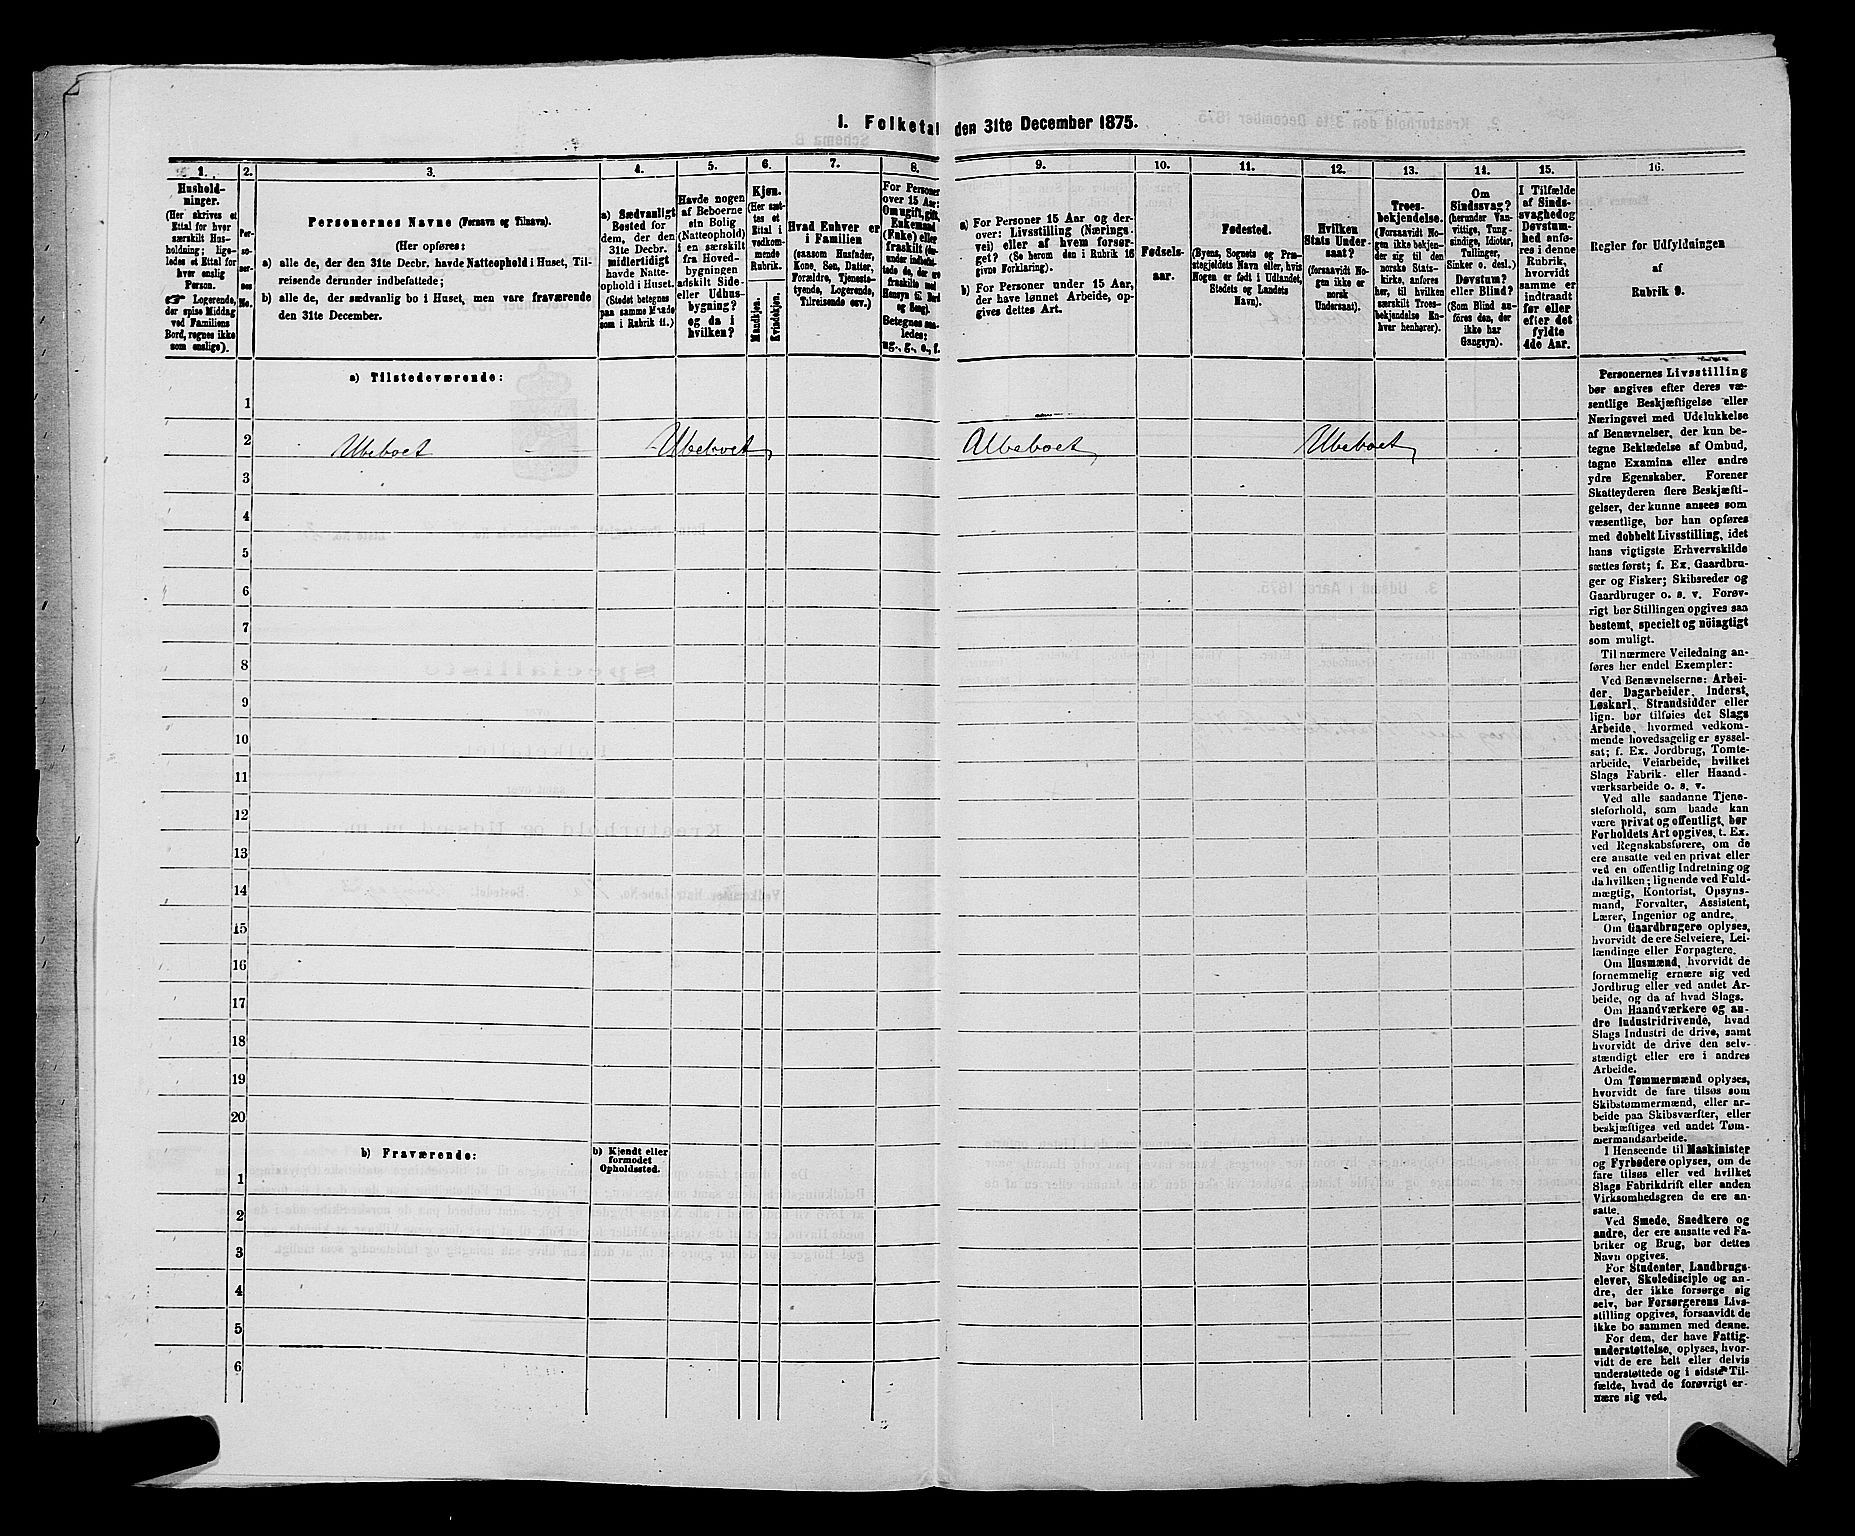 1. Folketal den 31te December 1875.
1.
Hushold-
ninger.
(Her skrives et
Ettal for hver
særskilt Hus-
holdning; lige-
ledes et Ettal for
hver enslig
Person.
☞ Logerende,
der spise Middag
ved Familiens
Bord, regnes ikke
som enslige).
2.
Per-
so-
ner-
nes
No.
3.
Personernes Navne (Fornavn og Tilnavn).
(Her opføres:
a) alle de, der den 31te Decbr. havde Natteophold i Huset, Til-
reisende derunder indbefattede;
b) alle de, der sædvanlig bo i Huset, men vare fraværende
den 31te December.
4.
a) Sædvanligt
Bosted for
dem, der den
31te Decbr.
midlertidigt
havde Natte-
ophold i Huset.
(Stedet betegnes
paa samme Maade
som i Rubrik 11.)
5.
Havde nogen
af Beboerne
sin Bolig
(Natteophold)
i en særskilt
fra Hoved-
bygningen
adskilt Side-
eller Udhus-
bygning?
og da i
hvilken?
6.
Kjøn.
(Her sæt-
tes et
Ettal i
vedkom-
mende
Rubrik.
Mandkjøn.
Kvindekjøn.
7.
Hvad Enhver er
i Familien
(saasom Husfader,
Kone, Søn, Datter,
Forældre, Tjeneste-
tyende, Logerende,
Tilreisende osv.)
8.
For Personer
over 15 Aar:
Om ugift, gift,
Enkemand
(Enke) eller
fraskilt (her-
under indbefat-
tede de, der ere
fraskilte med
Hensyn til Bord
og Seng).
Betegnes saa-
ledes:
ug., g., e., f.
9.
a) For Personer 15 Aar og der-
over: Livsstilling (Nærings-
vei) eller af hvem forsør-
get? (Se herom den i Rubrik 16
givne Forklaring).
b) For Personer under 15 Aar,
der have lønnet Arbeide, op-
gives dettes Art.
10.
Fødsels-
aar.
11.
Fødested.
(Byens, Sognets og Præ-
stegjeldets Navn eller, hvis
Nogen er født i Udlandet,
Stedets og Landets
Navn).
12.
Hvilken
Stats Under-
saat?
(forsaavidt No-
gen ikke er
norsk
Undersaat).
13.
Troes-
bekjendelse.
(Forsaavidt No-
gen ikke bekjen-
der sig til den
norske Stats-
kirke, anføres
her, til hvilken
særskilt Troes-
bekjendelse En-
hver henhører).
14.
Om
Sindssvag?
(herunder Van-
vittige, Tung-
sindige, Idioter,
Tullinger,
Sinker o. desl.)
Døvstum?
eller Blind?
(Som Blind an-
føres den, der
ikke har
Gangsyn).
15.
I Tilfælde
af Sinds-
svaghed og
Døvstum-
hed anfø-
res i denne
Rubrik,
hvorvidt
samme er
indtraadt
før eller
efter det
fyldte
4de Aar.
16.
Regler for Udfyldningen
af
Rubrik 9.
a) Tilstedeværende:
1
2 Ubeboet Ubeboet Ubeboet Ubeboet
3
4
5
6
7
8
9
10
11
12
13
14
15
16
17
18
19
20
b) Fraværende:
b) Kjendt eller
formodet
Opholdssted.
1
2
3
4
5
6
Personernes Livsstilling
bør angives efter deres væ-
sentlige Beskjæftigelse eller
Næringsvei med Udelukkelse
af Benævnelser, der kun be-
tegne Beklædelse af Ombud,
tagne Examina eller andre
ydre Egenskaber. Forener
Skatteyderen flere Beskjæfti-
gelser, der kunne ansees som
væsentlige, bør han opføres
med dobbelt Livsstilling, idet
hans vigtigste Erhvervskilde
sættes først; f. Ex. Gaardbru-
ger og Fisker; Skibsreder og
Gaardbruger o. s. v. Forøv-
rigt bør Stillingen opgives saa
bestemt, specielt og nöiagtigt
som muligt.
Til nærmere Veiledning an-
føres her endel Exempler:
Ved Benævnelserne: Arbei-
der, Dagarbeider, Inderst,
Løskarl, Strandsidder eller
lign. bør tilføies det Slags
Arbeide, hvormed vedkom-
mende hovedsagelig er syssel-
sat; f. Ex. Jordbrug, Tomte-
arbeide, Veiarbeide, hvilket
Slags Fabrik- eller Haand-
værksarbeide o. s. v.
Ved alle saadanne Tjene-
steforhold, som baade kan
være privat og offentligt, bør
Forholdets Art opgives, t. Ex.
ved Regnskabsførere, om de
ere ansatte ved en privat eller
ved en offentlig Indretning og
da hvilken; lignende ved Fuld-
mægtig, Kontorist, Opsyns-
mand, Forvalter, Assistent,
Lærer, Ingeniør og andre.
Om Gaardbrugere oplyses,
hvorvidt de ere Selveiere, Lei-
lændinge eller Forpagtere.
Om Husmænd, hvorvidt de
fornemmelig ernære sig ved
Jordbrug eller ved andet Ar-
beide, og da af hvad Slags.
Om Haandværkere og an-
dre Industridrivende, hvad
Slags Industri de drive, samt
hvorvidt de drive den selv-
stændigt eller ere i andres
Arbeide.
Om Tømmermænd oplyses,
hvorvidt de fare tilsøs som
Skibstømmermænd, eller ar-
beide paa Skibsværfter, eller
beskjæftiges ved andet Tøm-
mermandsarbeide.
I Henseende til Maskinister
og Fyrbødere oplyses, om de
fare tilsøs eller ved hvilket
Slags Fabrikdrift eller anden
Virksomhedsgren de ere an-
satte.
Ved Smede, Snedkere og
andre, der ere ansatte ved Fa-
briker og Brug, bør dettes
Navn opgives.
For Studenter, Landbrugs-
elever, Skoledisciple og an-
dre, der ikke forsørge sig
selv, bør Forsørgerens Livs-
stilling opgives, forsaavidt de
ikke bo sammen med denne.
For dem, der have Fattig-
understøttelse, oplyses, hvor-
vidt de ere helt eller delvis
understøttede og i sidste Til-
fælde, hvad de forøvrigt er-
nære sig ved.